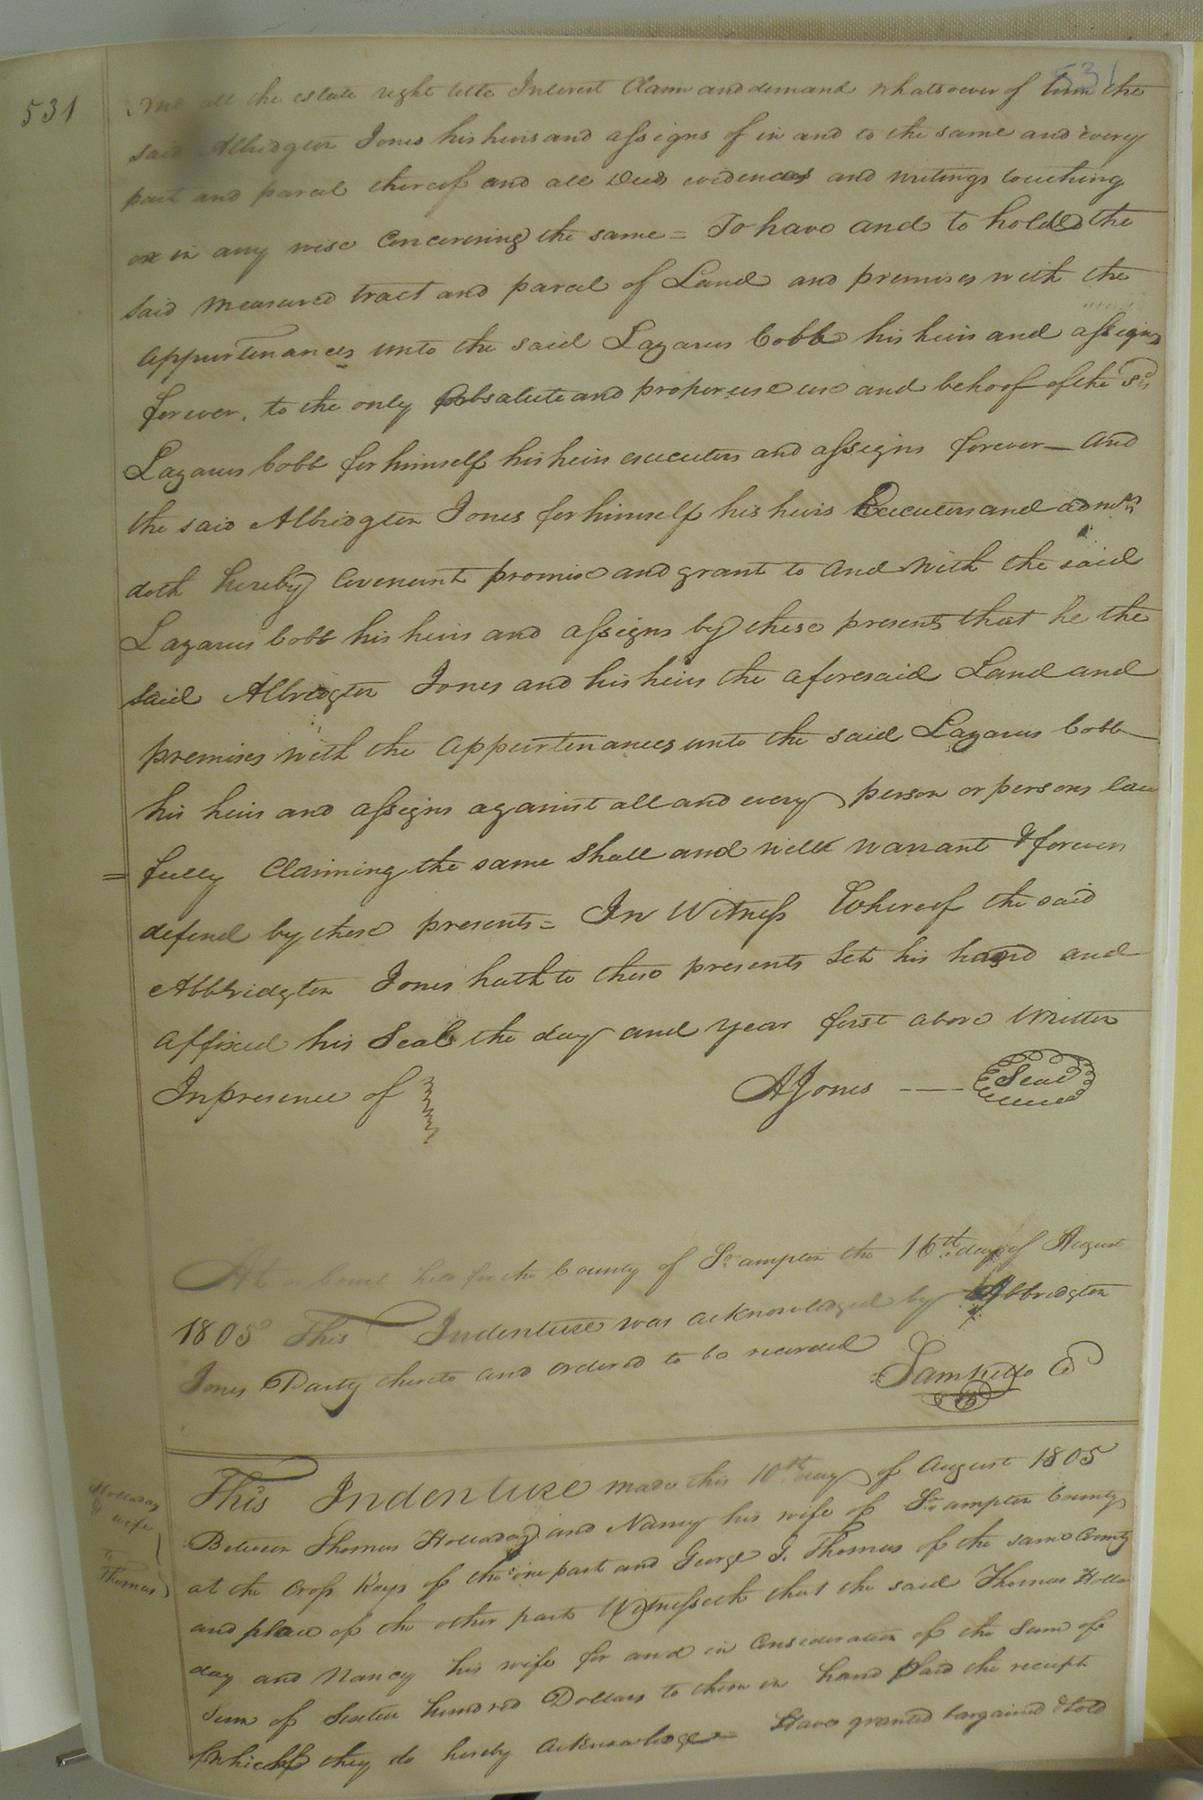 531
531
And all the estate right title Interest Claim and demand whatsoever of him the
said Albridgton Jones his heirs and assigns of in and to the same and every
part and parcel thereof and all Deeds evidences and writings touching
or in any wise Concerning the same = To have and to hold the
said measured tract and parcel of Land and premises with the
appurtenances unto the said Lazarus Cobb his heirs and assigns
forever, to the only absalute and proper use use and behoof of the Sd
Lazarus Cobb for himself his heirs executors and assigns forever — And
the said Albridgton Jones for himself his heirs Executors and admrs
doth hereby Covenant promise and grant to and with the said
Lazarus Cobb his heirs and assigns by these presents that he the
said Albridgton Jones and his heirs the aforesaid Land and
premises with the appurtenances unto the said Lazarus Cobb
his heirs and assigns against all and every person or persons law
= fully Claiming the same Shall and will warrant & forever
defend by these presents = In Witness Whereof the said
Abbridgton Jones hath to these presents Set his hand and
affixed his Seal the day and year first above Written
In presence of
AJones —— Seal
At Court held for the County of So ampton the 16th day of August
1805 This Indenture was acknowledged by Abbridgton
Jones Party thereto and ordered to be recorded
Sam Kello C
Holladay
& wife
to
Thomas
This Indenture made this 10th day of August 1805
Between Thomas Holladay and Nancy his wife of So ampton County
at the Cross Keys of the one part and George J. Thomas of the same County
and place of the other part Witnesseth that the said Thomas Holla
day and Nancy his wife for and in Consideration of the Sum of
Sum of Sixteen hundred Dollars to them in hand Paid the receipt
Which they do hereby acknowledge = Have granted bargained & sold